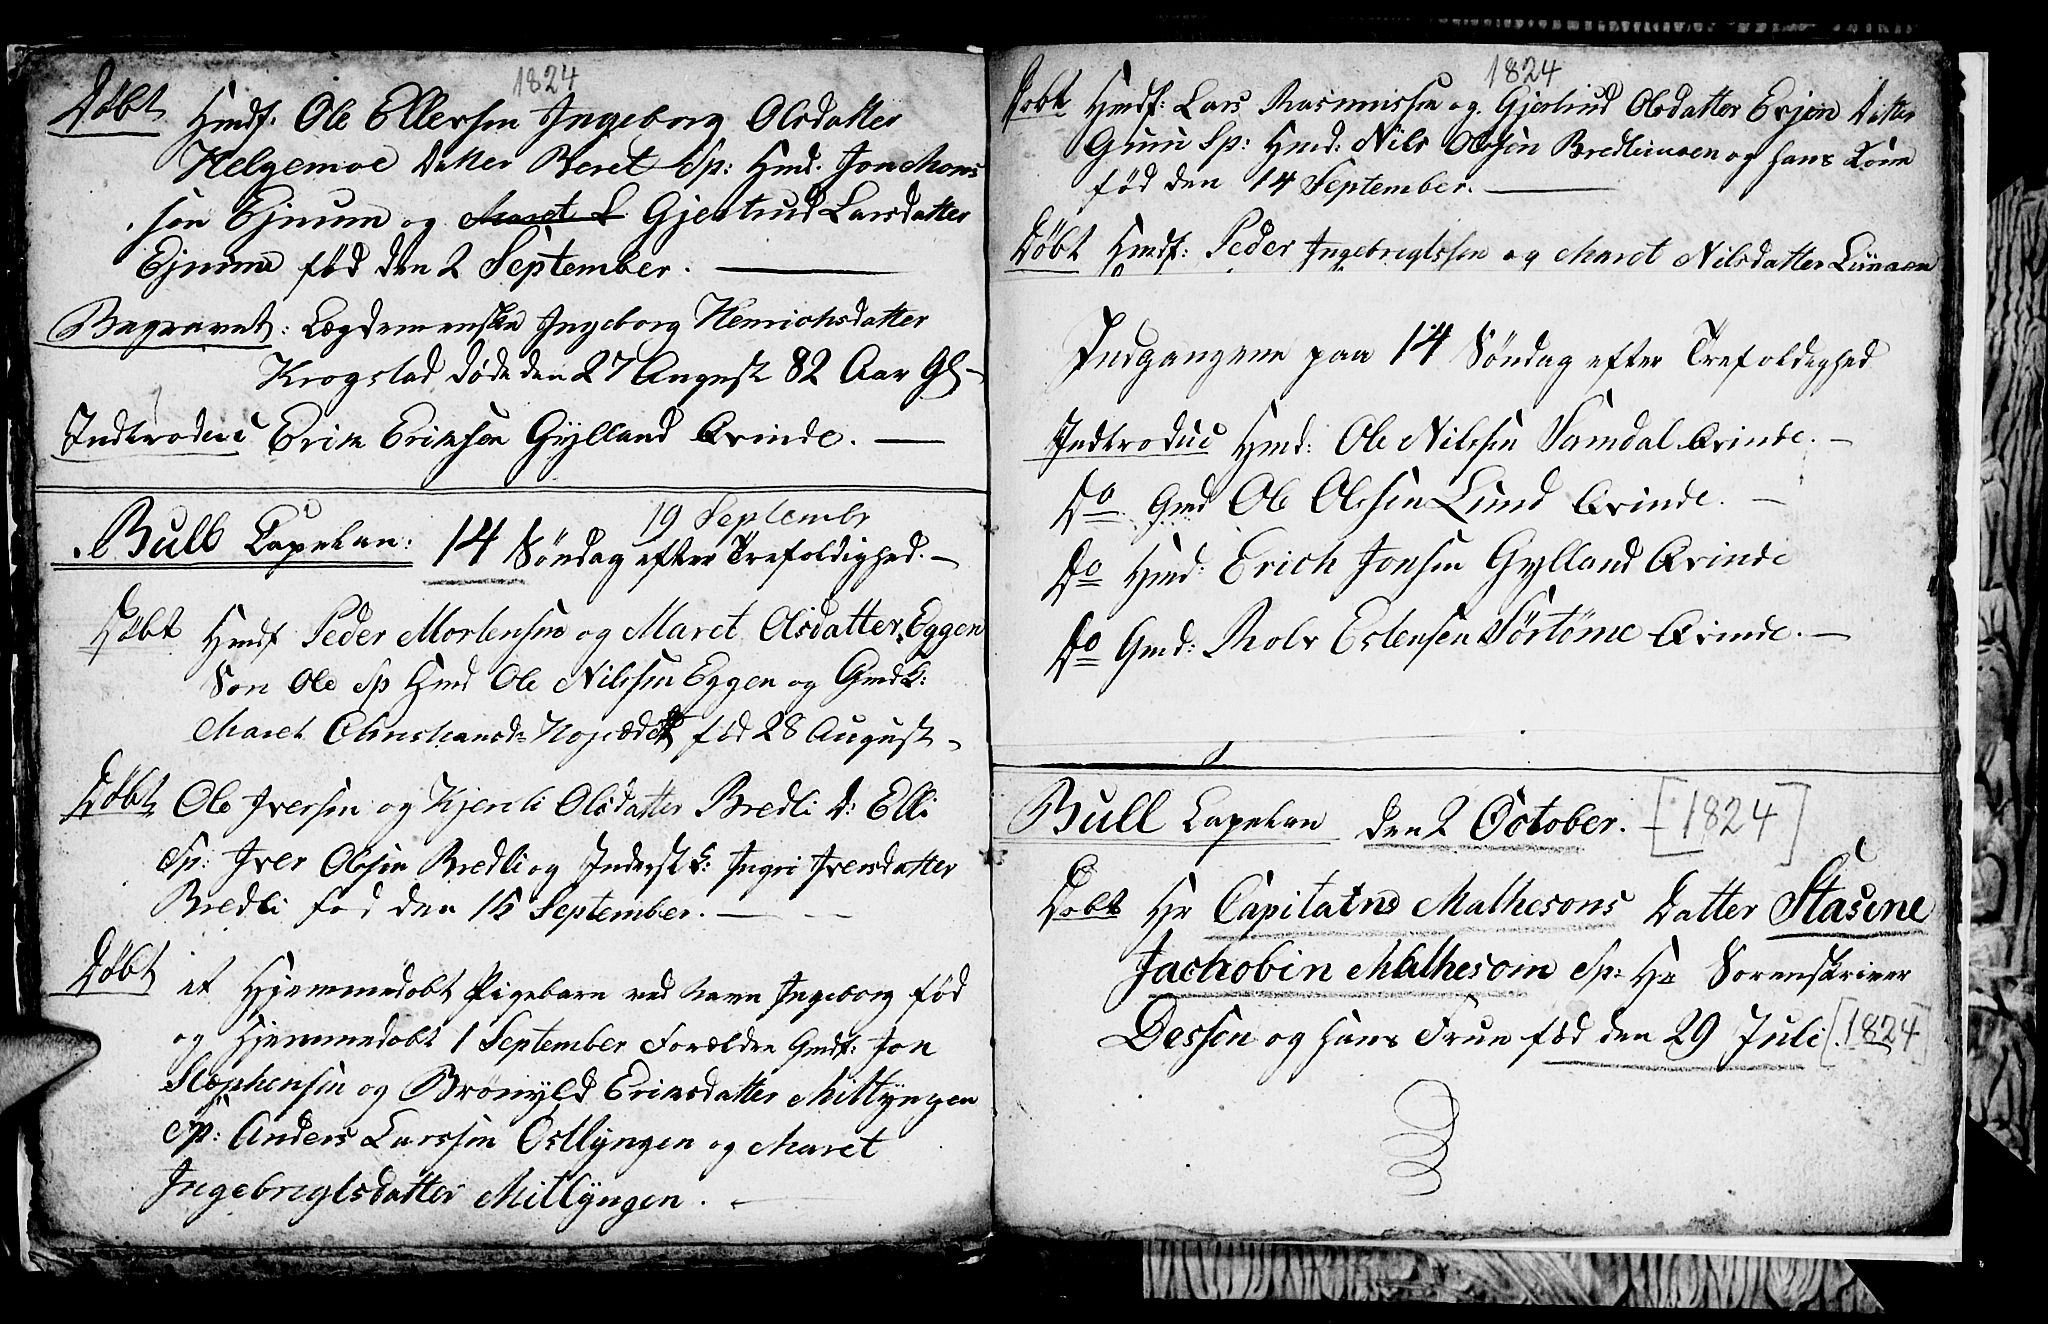 1824
Döbt Hmdf. Ole Ellevsen Ingeborg Olsdatter
Helgemoe Datter Beret Sp: Hmd. Jon Mons
sön Ejnum og Maret L Gjertrud Larsdatter
Ejnum föd den 2 September.
Begravet: Lægdemenske Ingeborg Henrichsdatter
Krogstad döde den 27 August 82 Aar Gl
Indtroduc Erik Eriksen Gÿlland Qvinde.
19 Septembr
Bull Capelan: 14 Söndag efter Trefoldighed.
Döbt Hmdf Peder Mortensen og Maret Olsdatter Eggen
Sön Ole Sp Hmd Ole Nilssen Eggen og Gmdk:
Maret Christiansd föd 28 August
Döbt Ole Iversen og Kjersti Olsdatter Bredli D: Elli
Sp: Iver Olsen Bredli og Inderst k: Ingri Iversdatter
Bredli föd den 15 September.
Döbt et Hjemmedöbt Pigebarn ved Navn Ingeborg föd
og Hjemmedöbt 1 September Forældre Gmdf: Jon
Stephensen og Brönyld Eriksdatter Mitlÿngen
Sp: Anders Larssen Ostlÿngen og Maret
Ingebregtsdatter Mitlÿngen.
1824
Döbt Hmdf: Lars Rasmussen og Gjertrud Olsdatter Evjen Datter
Guru Sp: Hmd: Nils Olssen og hans Kone
föd den 14 September.
Döbt Hmdf: Peder Ingebregtssen og Maret Nilsdatter
Indgangene paa 14 Söndag efter Trefoldighed
Indtroduc Hmd: Ole Nilssen Samdal Qvinde.
Do Gmd Ole Olssen Lund Qvinde.
Do Hmd: Erich Jonsen Gylland Qvinde
Do Gmd: Rolv Estensen Sörtömme Qvinde.
Bull Capelan den 2 October. [1824]
Döbt Hr Capitaine Mathesons Datter Stasine
Jachobin Mathesom Sp: Hr Sorenskriver
Dessen og hans Frue föd den 29 Juli [1824]